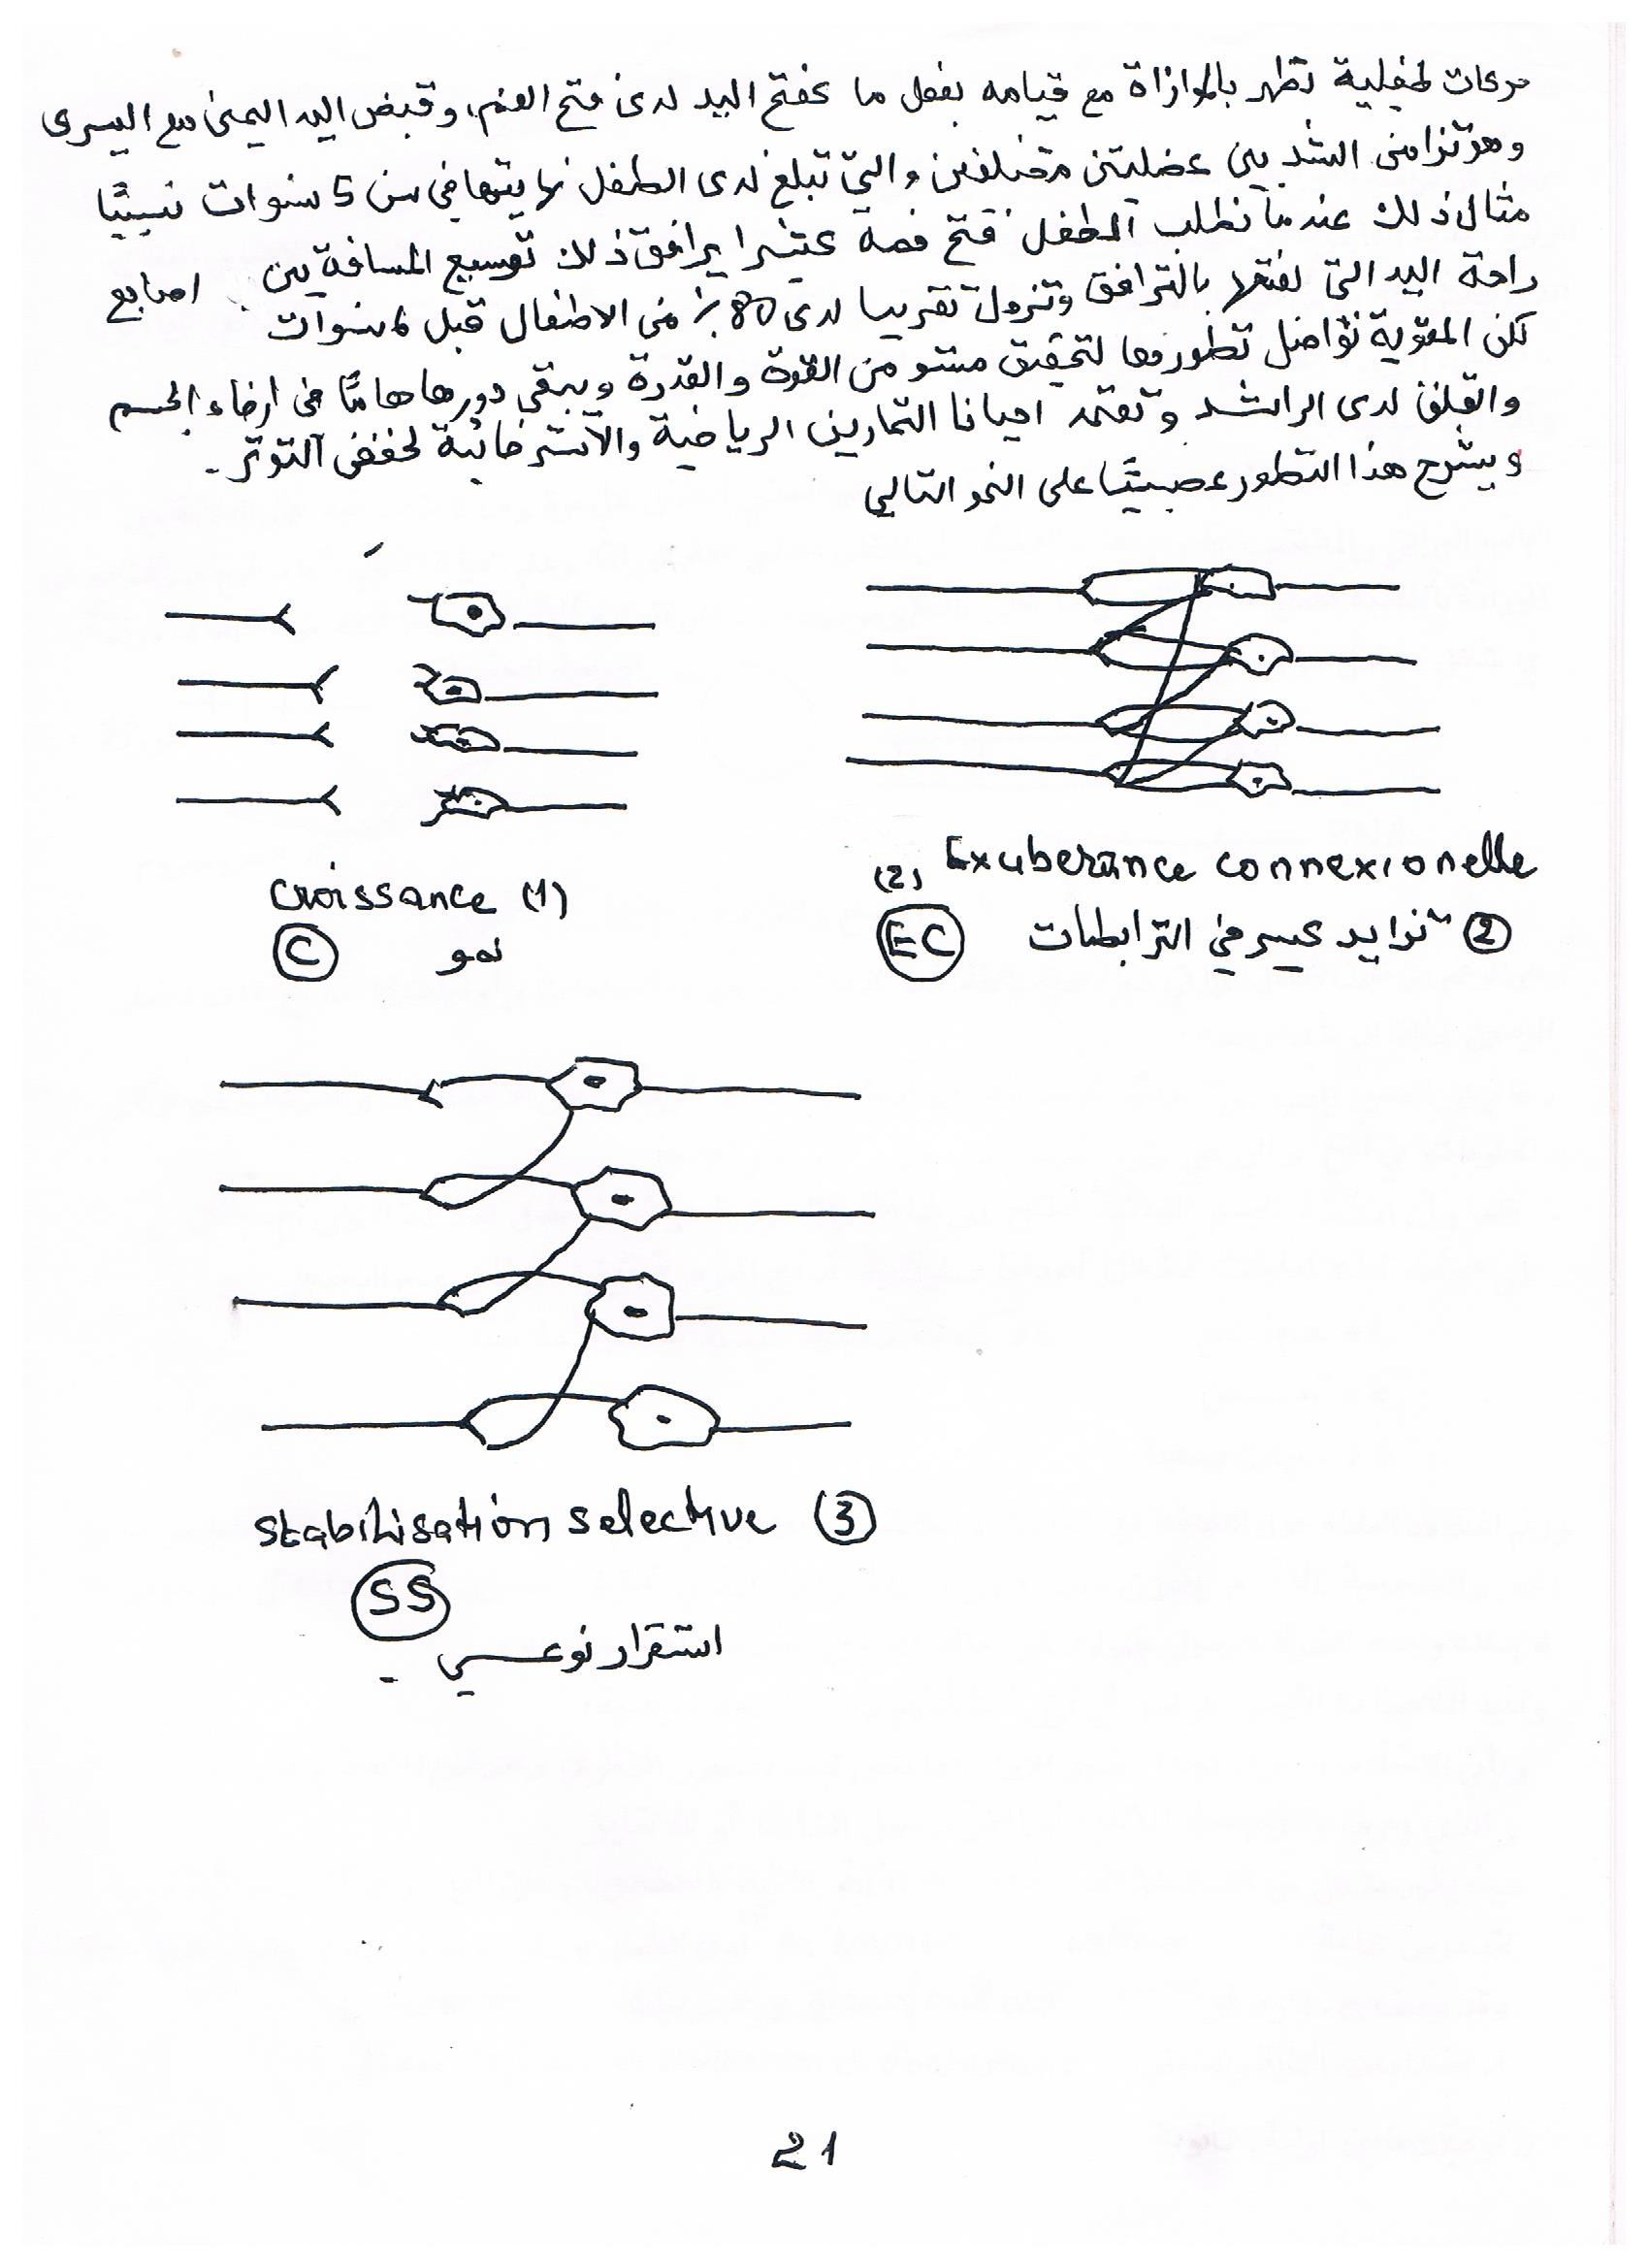 حركات طفيلية تظهر بالموازاة مع قيامه بفعل ما كفتح اليد لدى فتح الفم، وقبض اليد اليمنى مع اليسرى
وهو تزامن الشد بين عضلتين مختلفين والتي تبلغ لدى الطفل نهايتها في سن 5 سنوات نسبيًا
مثال ذلك عندما نطلب الطفل فتح فمه كثيرا يرافق ذلك توسيع المسافة بين أصابع
راحة اليد التي نفتحها بالترافق وتزول تقريبا لدى 80 % من الاطفال قبل 6 سنوات
لكن المقوية تواصل تطورها لتحقيق مستو من القوة والقدرة ويبقى دورها هامًا في ارخاء الجسم
والقلق لدى الراشد وتعتمد احيانا التمارين الرياضية والاسترخائية لخفض التوتر.
ويشرح هذا التطور عصبيًا على النحو التالي
Croissance (1)
نمو (C)
(2) Exubérance connexionelle
(2) تزايد كبير في الترابطات (EC)
stabilisation selective (3)
(SS)
استقرار نوعي.
21